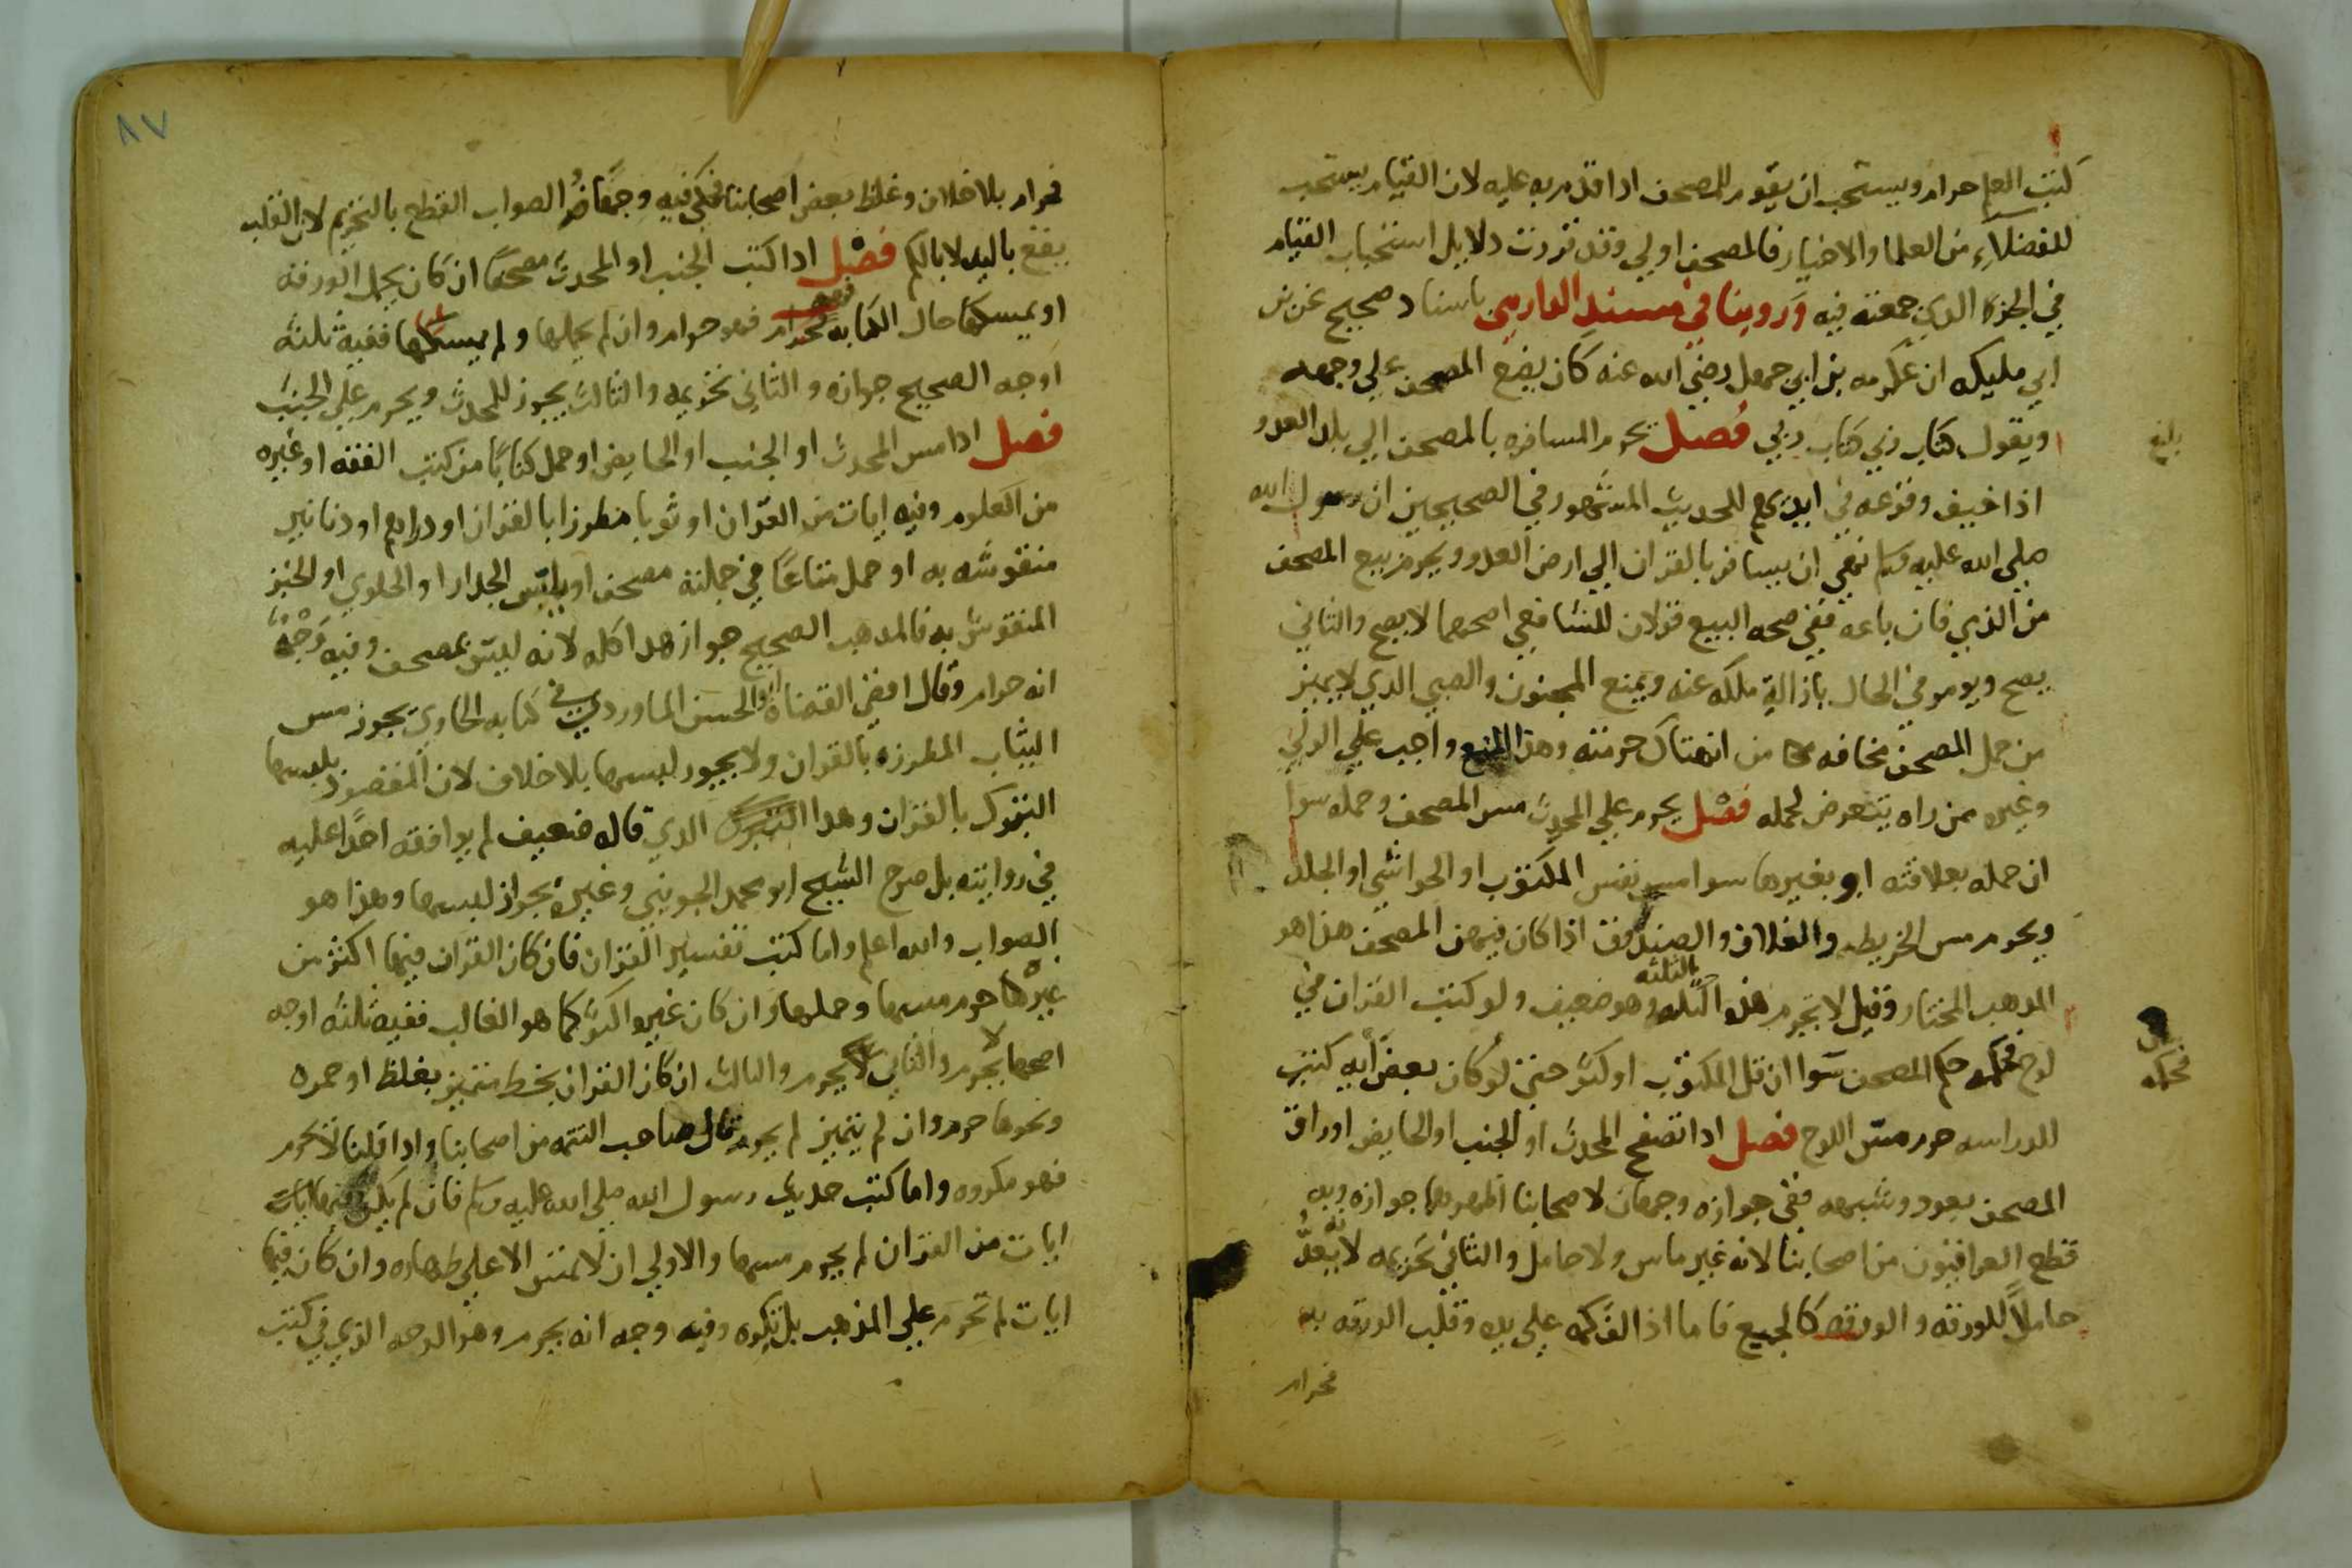 كتب العلم حرام ويستحب ان يقوم للمصحف اذا قدم به عليه لان القيام يستحب
للفضلاء من العلما والاخيار فالمصحف اولي وقد قررت دلايل استحباب القيام
في الجزء الذي جمعته فيه وروينا في مسند الدارمي باسناد صحيح عن بن
ابي مليكه ان عكرمه بن ابي جهل رضي الله عنه كان يضع المصحف علي وجهه
ويقول كتاب ربي كتاب ربي فصل يحرم المسافره بالمصحف الي بلد العدو
بلغ
اذا خيف وقوعه في ايديهم للحديث المشهور في الصحيحين ان رسول الله
صلي الله عليه وسلم نهي ان يسافر بالقران الي ارض العدو ويحرم بيع المصحف
من الذمي فان باعه ففي صحه البيع قولان للشافعي اصحهما لا يصح والثاني
يصح ويومر في الحال بازالة ملكه عنه ويمنع المجنون والصبي الذي لا يميز
من حمل المصحف مخافه من انتهاك حرمته وهذا المنع واجب علي الولي
وغيره ممن راه يتعرض لحمله فصل يحرم علي المحدث مس المصحف وحمله سوا
ان حمله بعلاقته او بغيرها سوا مس نفس المكتوب او الحواشي او الجلد
ويحرم مس الخريطه والغلاف والصندوق اذا كان فيهن المصحف هذا هو
المذهب المختار وقيل لا تحرم هذه الثلثه وهو ضعيف ولو كتب القران في
لوح فحكمه حكم المصحف سوا ان قل المكتوب او كثر حتي لو كان بعض ايه كتبت
فحكمه
للدراسه حرم مس اللوح فصل اذا تصفح المحدث او الجنب او الحايض اوراق
المصحف بعود وشبهه ففي جوازه وجهان لاصحابنا اظهرهما جوازه وبه
قطع العراقيون من اصحابنا لانه غير ماس ولا حامل والثاني تحريمه لانه يعد
حاملاً للورقه والورقه كالجميع فاما اذا لف كمه علي يده وقلب الورقه به
فحرام
٨٧
فحرام بلا خلاف وغلط بعض اصحابنا فحكي فيه وجهًا والصواب القطع بالتحريم لان القلب
يقع باليد لا بالكم فصل اذا كتب الجنب او المحدث مصحفًا ان كان يحمل الورقه
او يمسكها حال الكتابه فهو حرام وان لم يحملها ولم يمسها ففيه ثلثه
اوجه الصحيح جوازه والثاني تحريمه والثالث يجوز للمحدث ويحرم علي الجنب
فصل اذا مس المحدث او الجنب او الحايض او حمل كتابًا من كتب الفقه او غيره
من العلوم وفيه ايات من القران او ثوبا مطرزا بالقران او دراهم او دنانير
منقوشه به او حمل متاعًا في جملته مصحف او لمس الجدار او الحلوي او الخبز
المنقوش به فالمذهب الصحيح جواز هذا كله لانه ليس بمصحف وفيه وجه
انه حرام وقال اقضي القضاة ابو الحسن الماوردي في كتابه الحاوي يجوز مس
الثياب المطرزه بالقران ولا يجوز لبسها بلا خلاف لان المقصود بلبسها
التبرك بالقران وهذا الذي قاله ضعيف لم يوافقه احدًا عليه
في روايته بل صرح الشيخ ابو محمد الجويني وغيره بجواز لبسها وهذا هو
الصواب والله اعلم واما كتب تفسير القران فان كان القران فيها اكثر من
غيرها حرم مسها وحملها وان كان غيره اكثر كما هو الغالب ففيه ثلثه اوجه
اصحها لا يحرم والثاني يحرم والثالث ان كان القران بخط متميز بغلظ او حمره
ونحوها حرم وان لم يتميز لم يحرم قال صاحب التتمه من اصحابنا واذا قلنا لا يحرم
فهو مكروه واما كتب حديث رسول الله صلي الله عليه وسلم فان لم يكن فيها ايات
ايات من القران لم يحرم مسها والاولي ان لا تمس الا علي طهاره وان كان فيها
ايات لم تحرم علي المذهب بل تكره وفيه وجه انه يحرم وهو الوجه الذي في كتب